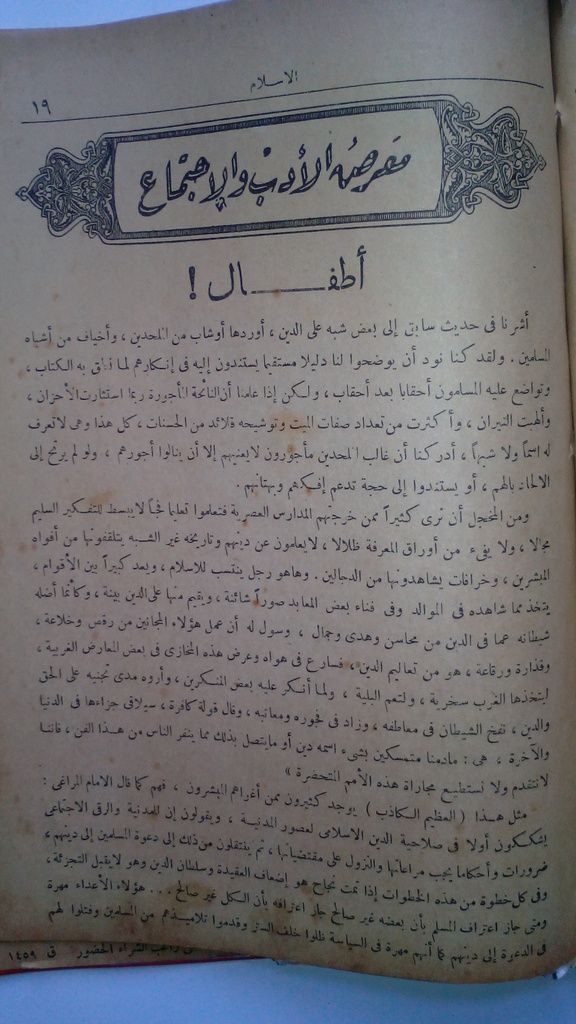 الاسلام
١٩
معرض الأدب والاجتماع
أطفــــــال !
أشرنا فى حديث سابق إلى بعض شبه على الدين ، أوردها أوشاب من الملحدين ، وأخياف من أشباه
المسلمين . ولقد كنا نود أن يوضحوا لنا دليلا مستقيما يستندون إليه فى إنكارهم لما نطق به الكتاب ،
وتواضع عليه المسلمون أحقابا بعد أحقاب ، ولكن إذا علمنا أن النائحة المأجورة ربما استثارت الأحزان ،
وألهبت النيران ، وأكثرت من تعداد صفات الميت وتوشيحه قلائد من الحسنات ، كل هذا وهى لاتعرف
له اسماً ولا شبهاً ، أدركنا أن غالب الملحدين مأجورون لايعنيهم إلا أن ينالوا أجورهم ، ولو لم يرتح إلى
الالحاد بالهم ، أو يستندوا إلى حجة تدعم إفكهم وبهتانهم .
ومن المخجل أن نرى كثيراً ممن خرجتهم المدارس العصرية فتعلموا تعليما فجاً لايبسط للتفكير السليم
مجالا ، ولا يفىء من أوراق المعرفة ظلالا ، لايعلمون عن دينهم وتاريخه غير الشبه يتلقفونها من أفواه
المبشرين ، وخرافات يشاهدونها من الدجالين . وهاهو رجل ينتسب للاسلام ، ويعد كبيراً بين الأقوام ،
يتخذ مما شاهده فى الموالد وفى فناء بعض المعابد صوراً شائنة ، ويقيم منها على الدين بينة ، وكأنما أضله
شيطانه عما فى الدين من محاسن وهدى وجمال ، وسول له أن عمل هؤلاء المجانين من رقص وخلاعة ،
وقذارة ورقاعة ، هو من تعاليم الدين ، فسارع فى هواه وعرض هذه المخازى فى بعض المعارض الغربية ،
ليتخذها الغرب سخرية ، ولتعم البلية ، ولما أنكر عليه بعض المنكرين ، وأروه مدى تجنيه على الحق
والدين ، نفخ الشيطان فى معاطفه ، وزاد فى فجوره ومعاتبه ، وقال قولة كافرة ، سيلاقى جزاءها فى الدنيا
والآخرة ، هى : مادمنا متمسكين بشىء اسمه دين أو مايتصل بذلك مما ينفر الناس من هذا الفن ، فاننا
لانتقدم ولا نستطيع مجاراة هذه الأمم المتحضرة »
مثل هذا ( العظيم الكاذب ) يوجد كثيرون ممن أغراهم المبشرون ، فهم كما قال الامام المراغى :
يشككون أولا فى صلاحية الدين الاسلامى لعصور المدنية ، ويقولون إن للمدنية والرقى الاجتماعى
ضرورات وأحكاما يجب مراعاتها والنزول على مقتضياتها ، ثم ينتقلون من ذلك إلى دعوة المسلمين إلى دينهم ،
وفى كل خطوة من هذه الخطوات إذا تمت نجاح هو إضعاف العقيدة وسلطان الدين وهو لايقبل التجزئة ،
ومتى جاز اعتراف المسلم بأن بعضه غير صالح جاز اعترافه بأن الكل غير صالح . . . هؤلاء الأعداء مهرة
فى الدعوة إلى دينهم كما أنهم مهرة فى السياسة ظلوا خلف الستر وقدموا تلاميذهم من المسلمين وفتلوا لهم
راغب الشراء الحضور ق ١٤٥٩